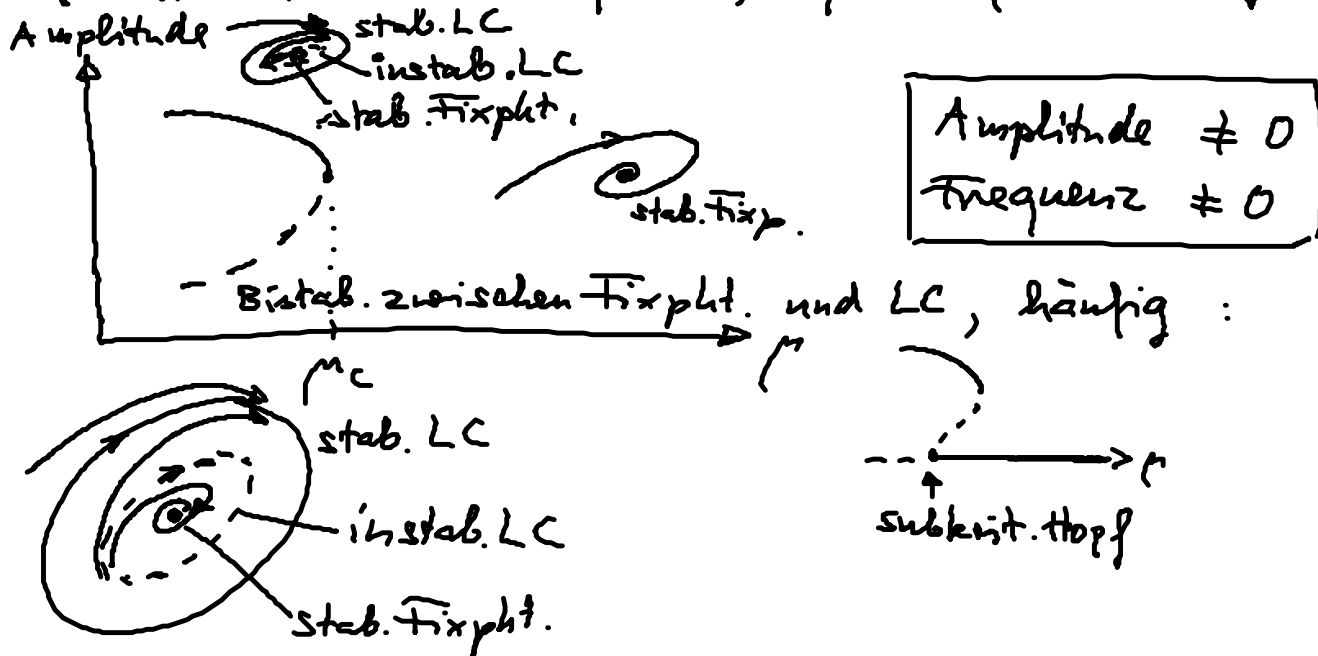 Amplitude
stab. LC
instab. LC
stab. Fixpkt.
Amplitude ≠ 0
Frequenz ≠ 0
stab. Fixp.
Bistab. zwischen Fixpkt. und LC, häufig :
μ
μc
stab. LC
instab. LC
stab. Fixpkt.
μ
subkrit. Hopf